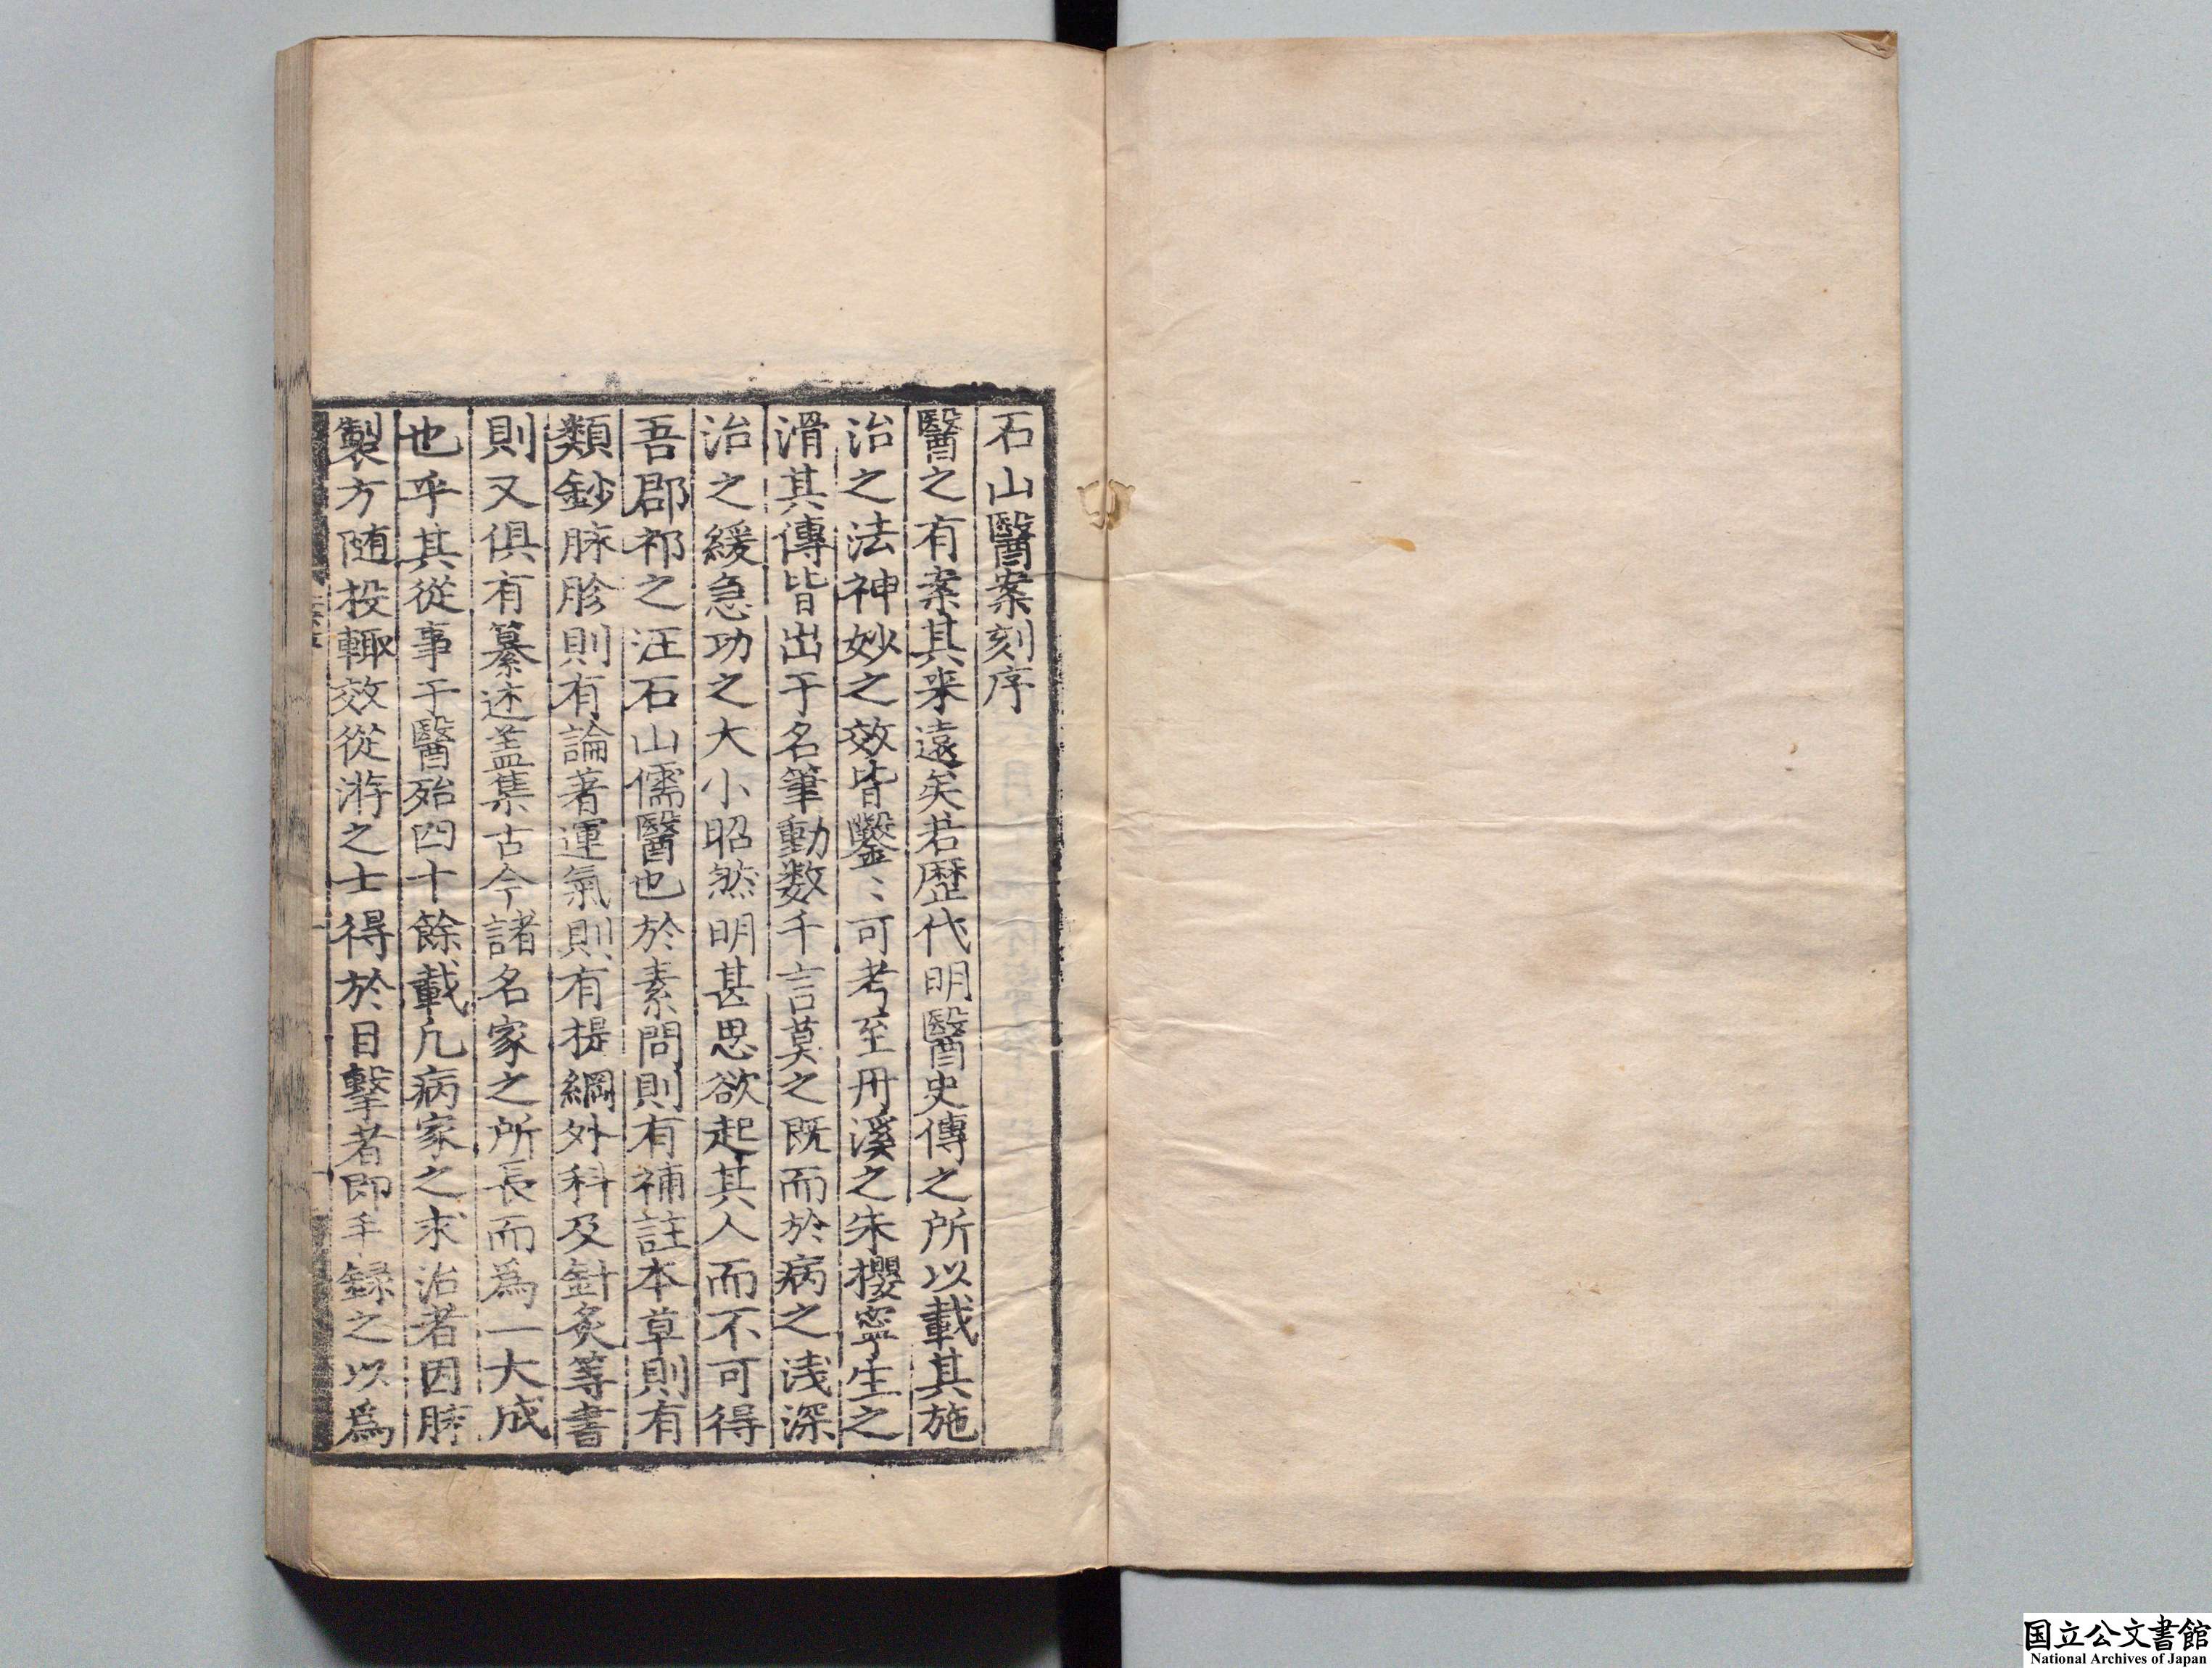 石山醫案刻序
醫之有案其来遠矣若歷代明醫史傳之所以載其施
治之法神妙之效皆鑿〻可考至丹溪之朱攖寧生之
滑其傳皆出于名筆動数千言莫之既而於病之浅深
治之緩急功之大小昭然明甚思欲起其人而不可得
吾郡祁之汪石山儒醫也於素問則有補註本草則有
類鈔脉胗則有論著運氣則有提綱外科及針灸等書
則又俱有纂述盖集古今諸名家之所長而為一大成
也乎其從事于醫殆四十餘載凢病家之求治者因脉
製方随投輙效從游之士得於目擊者即手録之以為
国立公文書館
National Archives of Japan